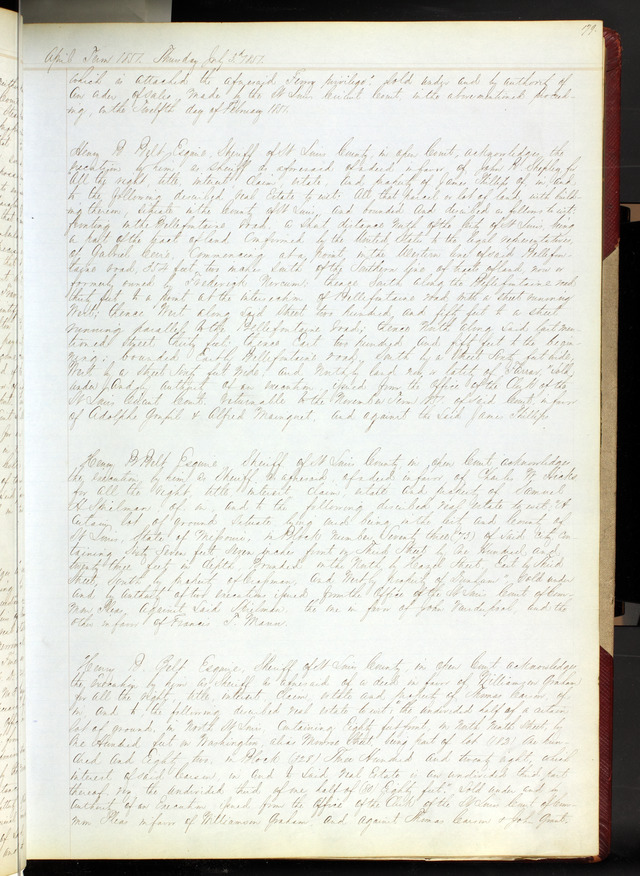 79
April Term 1851. Thursday July 3d 1851.
which is attached the aforesaid Ferry privilege. Sold under and by authority of
an order of sale made by the St Louis Circuit Court, in the above mentioned proceed-
ing, on the Twelfth day of February 1851.
Henry B Belt Esquire, Sheriff of St Louis County, in open Court, acknowledges the
execution by him as Sheriff as aforesaid of a deed in favor of John H. for
All the right, title, interest, claim, estate, and property of James Phillips of in and
to the following described real estate to wit: All that parcel or lot of land with build-
ing thereon, situate in the County of St Louis, and bounded and described as follows to wit:
fronting on the Bellefontaine road, a short distance north of the City of St Louis, being
a part of the tract of land confirmed by the United States to the legal representatives
of Gabriel Cerré, Commencing at a point, in the Western line of said Bellefon-
taine road, 254 feet, two inches South of the Southern line of tract of land, now or
formerly owned by Frederick; thence South along the Bellefontaine road
thirty feet to a point at the intersection of Bellefontaine road with a street running
West; thence West along said street two hundred and fifty feet to a street
running parallel to the Bellefontaine road; thence North along said last men-
tioned street thirty feet; thence East two hundred and fifty feet to the begin-
ning; bounded East by Bellefontaine road, South by a street sixty feet wide,
West by a street sixty feet wide, and North by land now or lately of
under and by authority of an execution issued from the Office of the Clerk of the
St Louis Circuit Court, returnable to the November Term of said Court in favor
of Adolphe & Alfred, and against the said James Phillips.
Henry B Belt Esquire Sheriff of St Louis County in open Court, acknowledges
the execution by him as Sheriff as aforesaid, of a deed in favor of Charles W
for All the right title interest claim estate and property of Samuel
A of in and to the following described real estate to wit: A
certain lot of ground situate lying and being in the City and County of
St Louis, State of Missouri, in Block number Seventy three (73) of said City Con-
taining Sixty Seven feet Seven inches front on Third Street by One Hundred and
twenty three feet in depth, bounded on the North by Street, East by Third
Street, South by property of, and West by property of. Sold under
and by authority of two executions issued from the Office of the St Louis Court of Com-
mon Pleas, Against said, the one in favor of John, and the
other in favor of Francis T.
Henry B Belt Esquire, Sheriff of St Louis County, in open Court acknowledges
the execution by him as Sheriff as aforesaid of a deed in favor of Williamson Graham
for all the right title interest, claim, estate and property of Thomas Carson of
in, and to, the following described real estate to wit: the undivided half of a certain
lot of ground, in North St Louis, Containing Eighty feet front, on North Ninth Street by
One Hundred feet on Washington alias Monroe Street, being part of lot (182) One hun-
dred and Eighty two, in Block (328) Three Hundred and twenty eight, which
interest of said Carson in and to said Real Estate is an undivided third part
thereof, viz, the undivided third of one half of said Eighty feet. Sold under and by
Authority of an Execution issued from the Office of the Clerk of the St Louis Court of Com-
mon Pleas in favor of Williamson Graham and against Thomas Carson & John